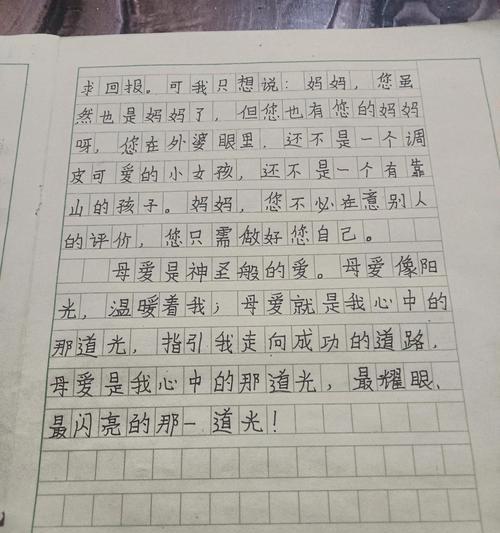 求回报。可我只想说：妈妈，您虽
然也是妈妈了，但您也有您的妈妈
呀，您在外婆眼里，还不是一个调
皮可爱的小女孩，还不是一个有靠
山的孩子。妈妈，您不必注意别人
的评价，您只需做好您自己。
母爱是神圣般的爱。母爱像阳
光，温暖着我；母爱就是我心中的
那道光，指引我走向成功的道路，
母爱是我心中的那道光，最耀眼、
最闪亮的那一道光！